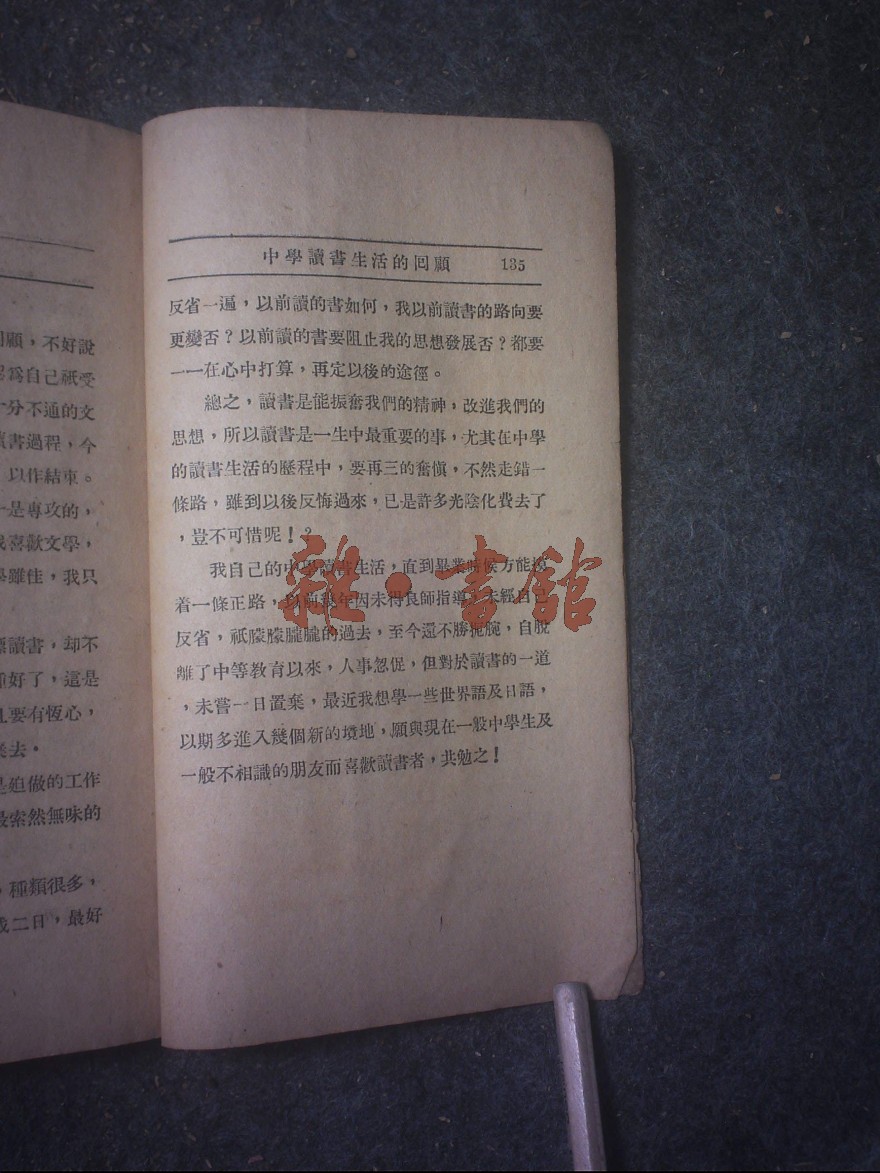 回顧，不好說
爲自己祇受
十分不通的文
讀書過程，今
以作結束。
是專攻的，
喜歡文學，
學雖佳，我只
讀書，却不
好了，這是
要有恆心，
去。
是廹做的工作
索然無味的
，種類很多，
或二日，最好
中學讀書生活的回顧 135
反省一遍，以前讀的書如何，我以前讀書的路向要
更變否？以前讀的書要阻止我的思想發展否？都要
一一在心中打算，再定以後的途徑。
總之，讀書是能振奮我們的精神，改進我們的
思想，所以讀書是一生中最重要的事，尤其在中學
的讀書生活的歷程中，要再三的奮愼，不然走錯一
條路，雖到以後反悔過來，已是許多光陰化費去了
，豈不可惜呢！？
我自己的中學讀書生活，直到畢業時候方能摸
着一條正路，以前幾年因未得良師指導，未經自己
反省，祇朦朦朧朧的過去，至今還不勝扼腕，自脫
離了中等教育以來，人事忽促，但對於讀書的一道
，未嘗一日置棄，最近我想學一些世界語及日語，
以期多進入幾個新的境地，願與現在一般中學生及
一般不相識的朋友而喜歡讀書者，共勉之！
雜·書館